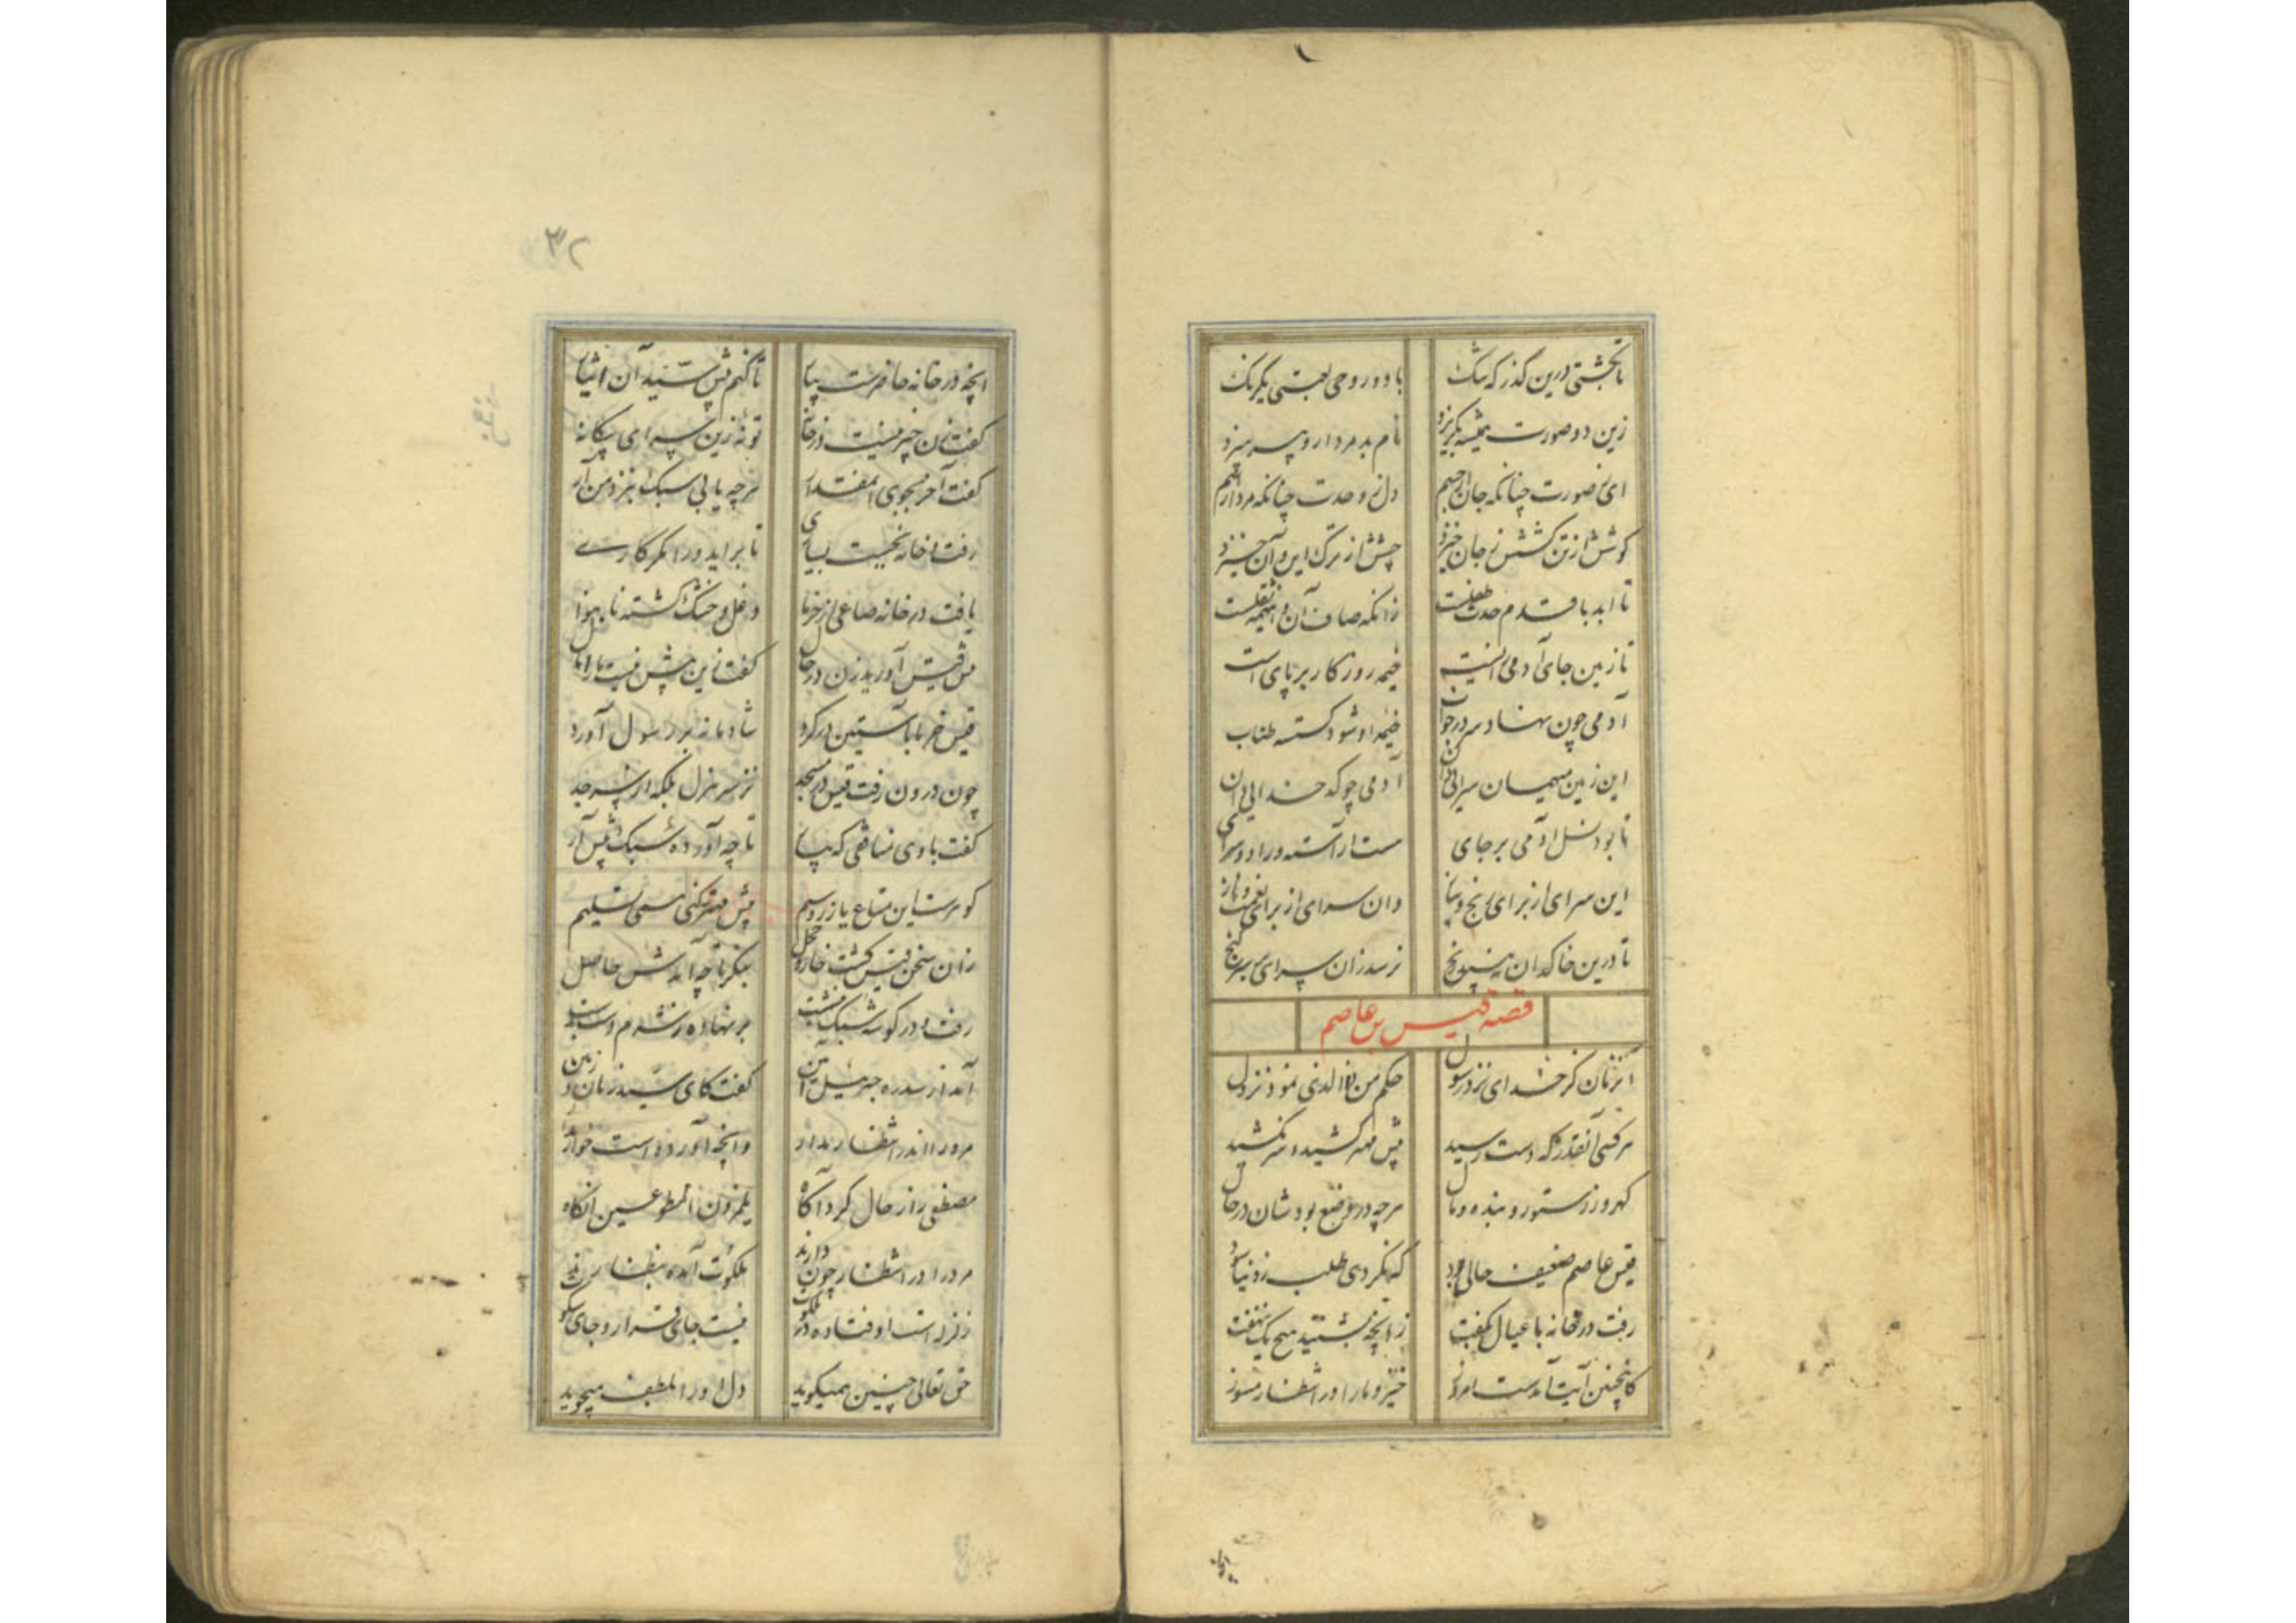 ۳۲
تا بجشتی درین گذر که تنگ با دو روحی بعیتی یکرنک
زین دو صورت همیشه بگریزد نام بد مردار و پسر سزد
ای صورت چنانکه جان از جسم دل ز وحدت چنانکه مرد از قسم
کوشش از تن کشش ز جان خیزد چشش از ترک این و آن خیزد
تا ابد با قدم حدث طفلست زانکه صافی آن و اینهمه ثفلست
تا زمین جای آدمی زائیست خیمه روزکار بر پای است
آدمی چون نهاد سر در خواب خیمه او شود کسسته طناب
این زمین میهمان سرائی دان آدمی چو کدخدایی دان
تا بود نسل آدمی بر جای هست آراسته ورا دو سرای
این سرای از برای رنج و نیاز وان سرای از برای نعمت و ناز
تا درین خاکدان نه بینی رنج نرسد زان سرای بر سر کنج
قصه قیس بن عاصم
آنزمان کز خدای نزد رسول حکم من ذا الذی نمود نزول
هر کسی آنقدر که دست رسید پیش مهتر کشید و سر نکشید
کهر و زر ستور و بنده و مال هر چه در وسع بودشان در حال
قیس عاصم ضعیف حالی بود که نکردی طلب ز دنیا سود
رفت در خانه با عیال بگفت زانچه بشنید هیچ یک ننهفت
کاینچنین آیت آمدست امروز خیز و ما را در انتظار مسوز
آنچه در خانه حاضرست بیار تا کنم پیش سید آن ایثار
گفت زن چیز نیست در خانه تو نه زین سرای بیکانه
گفت آخر بجوی آنمقدار هر چه یابی سبک بنزد من آر
رفت و خانه بجست بسیاری تا بر آید ورا مکر کاری
یافت در خانه صاعی از خرما دقل و خشک کشته نا بنوا
پیش قیس آورید زن در حال گفت زین بیش نیست ما را مال
قیس خرما بآستین در کرد شادمانه بر رسول آورد
چون درون رفت قیس در مسجد نز سر هزل بلکه از سر جد
گفت با وی منافقی که بیا تا چه آورده سبک پیش آر
کوهرست این متاع یا زر و سیم پیش مهتر کنی همی تسلیم
زان سخن قیس کشت خوار و خجل بنگر تا چه آمدش حاصل
رفت و در کوشه سبک بنشست بر نهاده ز شرم دست بدست
آمد از سدره جبرئیل امین گفت کای سید زمان و زمین
مرد را اندر انتظار مدار وانچه آورده است خوار مدار
مصطفی را ز حال کرد آگاه یلمزون المطوعین انگاه
مرد را در انتظار چون دارند ملکوت آمده بنظارند
زلزله است اوفتاده در ملکوت نیست جای قرار و جای سکوت
حق تعالی چنین همیکوید دل او را بلطف میجوید